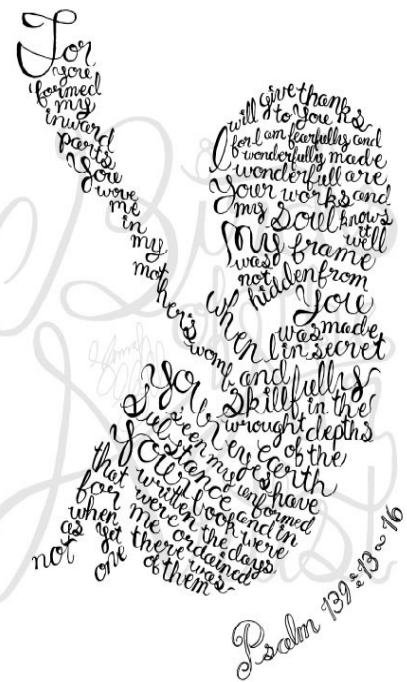 For
you
formed
my
inward
parts
You
wove
me
in
my
mot
her's
womb
I will give thanks
to You
for I am fearfully and
wonderfully made
wonderfull are
Your works and
my Soul knows
well
My frame
was
not
hidden from
You
when I was made
in secret
and
skillfully
wrought in the
depths
of the
earth
Your eyes have
seen my unformed
substance and in
Your book were
written the days
that were ordained
for me
when as yet there was
not one of them
Psalm 139:13~16